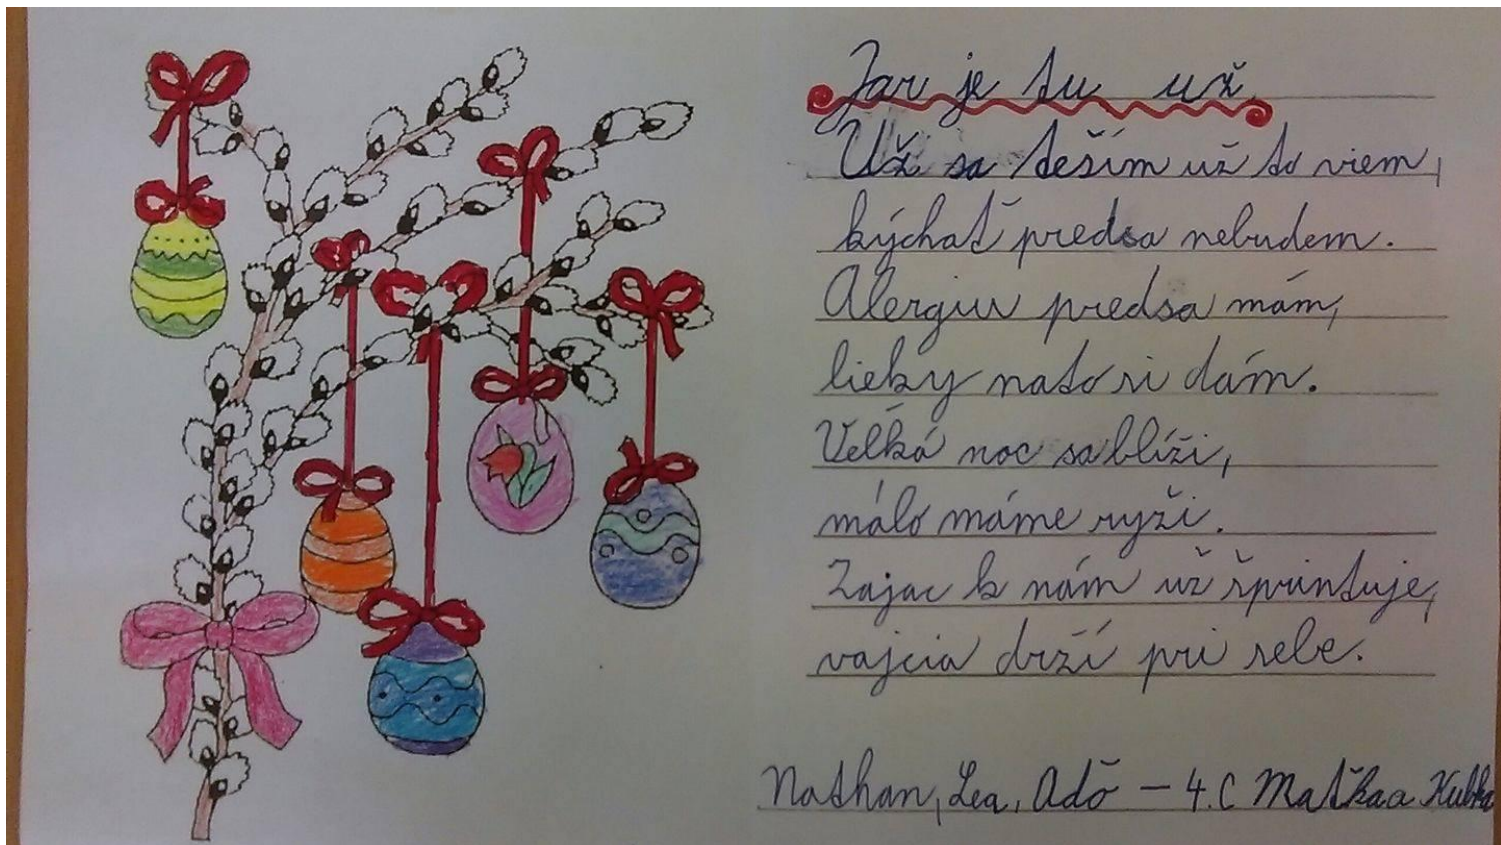 Jar je tu už
Už sa teším už to viem,
kýchať predsa nebudem.
Alergiu predsa mám,
lieky nato si dám.
Veľká noc sa blíži,
málo máme ryži.
Zajac k nám už šprintuje,
vajcia drží pri sebe.
Nathan, Lea, Aďo - 4.C Maťka a Kubka